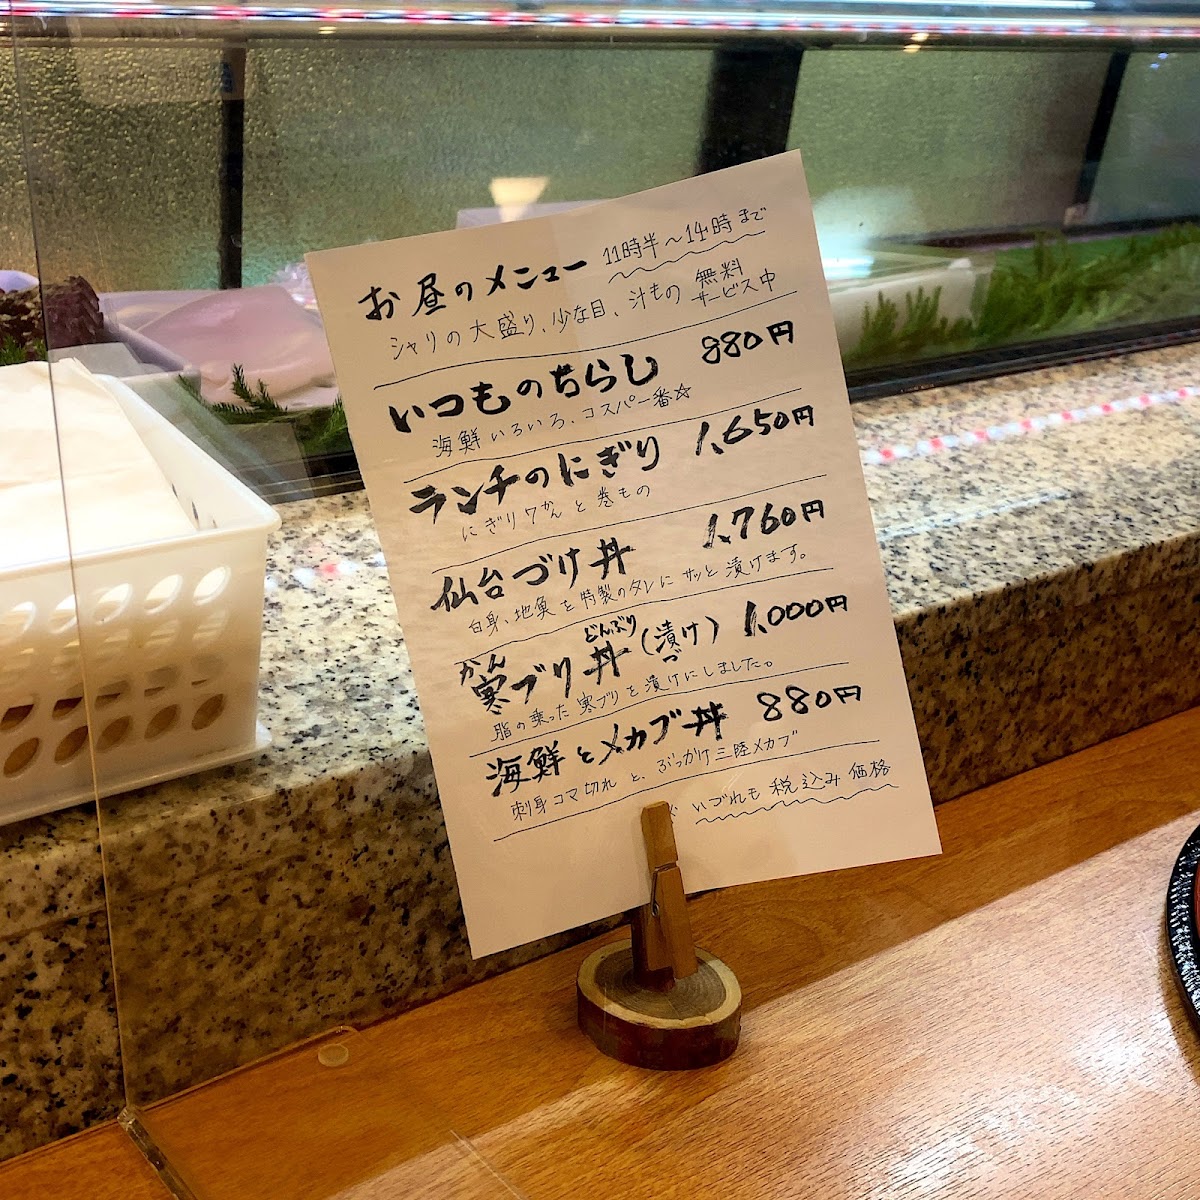 お昼のメニュー 11時半～14時まで
シャリの大盛り、少な目、汁もの 無料サービス中
いつものちらし 880円
海鮮いろいろ、コスパ一番☆
ランチのにぎり 1,650円
にぎり7かんと巻もの
仙台づけ丼 1,760円
白身、地魚を特製のタレにサッと漬けます。
寒ブリ丼(漬け) 1,000円
かん どんぶり づ
脂の乗った寒ブリを漬けにしました。
海鮮とメカブ丼 880円
刺身コマ切れと、ぶっかけ三陸メカブ
いづれも税込み価格